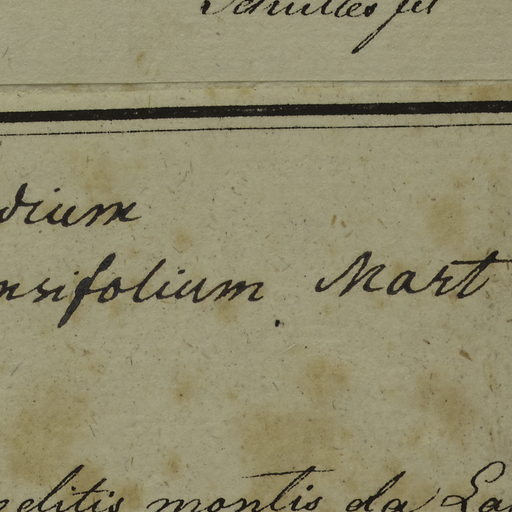 Schultes fil
dium
nsifolium Mart
editis montis da La